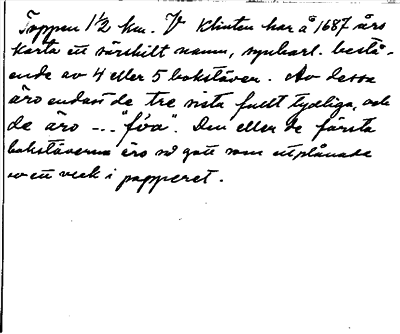 Toppen 1½ km. V Klinten har å 1687 års
karta ett särskilt namn, synbarl. bestå-
ende av 4 eller 5 bokstäver. Av dessa
äro endast de tre sista fullt tydliga, och
de äro -.. "föa". Den eller de första
bokstäverna äro så gott som utplånade
av ett veck i papperet.